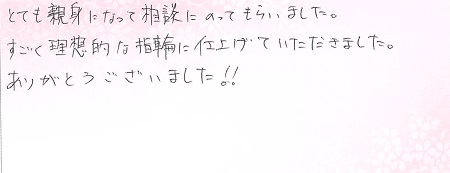 とても親身になって相談にのってもらいました。
すごく理想的な指輪に仕上げていただきました。
ありがとうございました!!